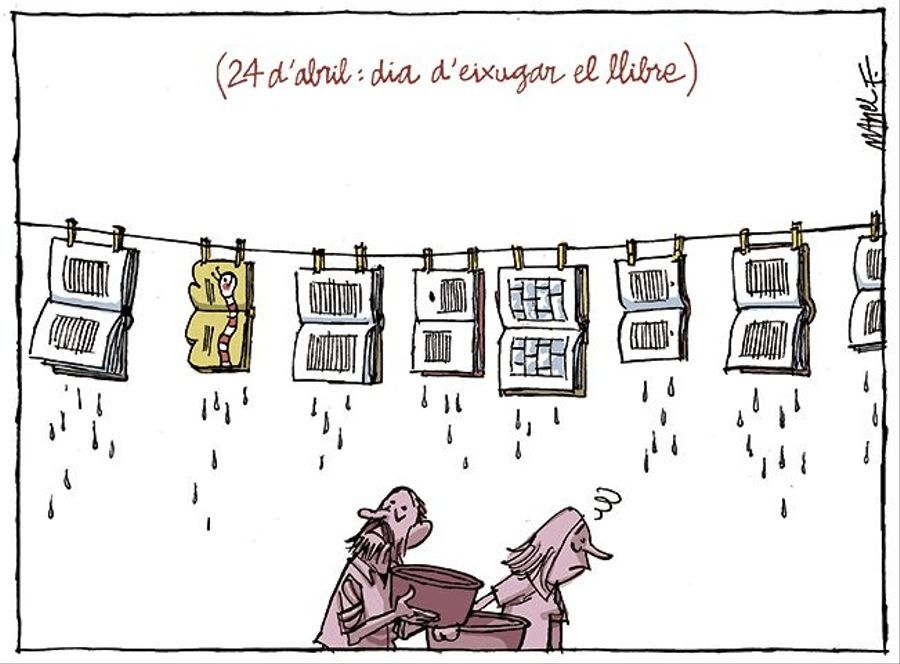 (24 d'abril: dia d'eixugar el llibre)
MANEL F.